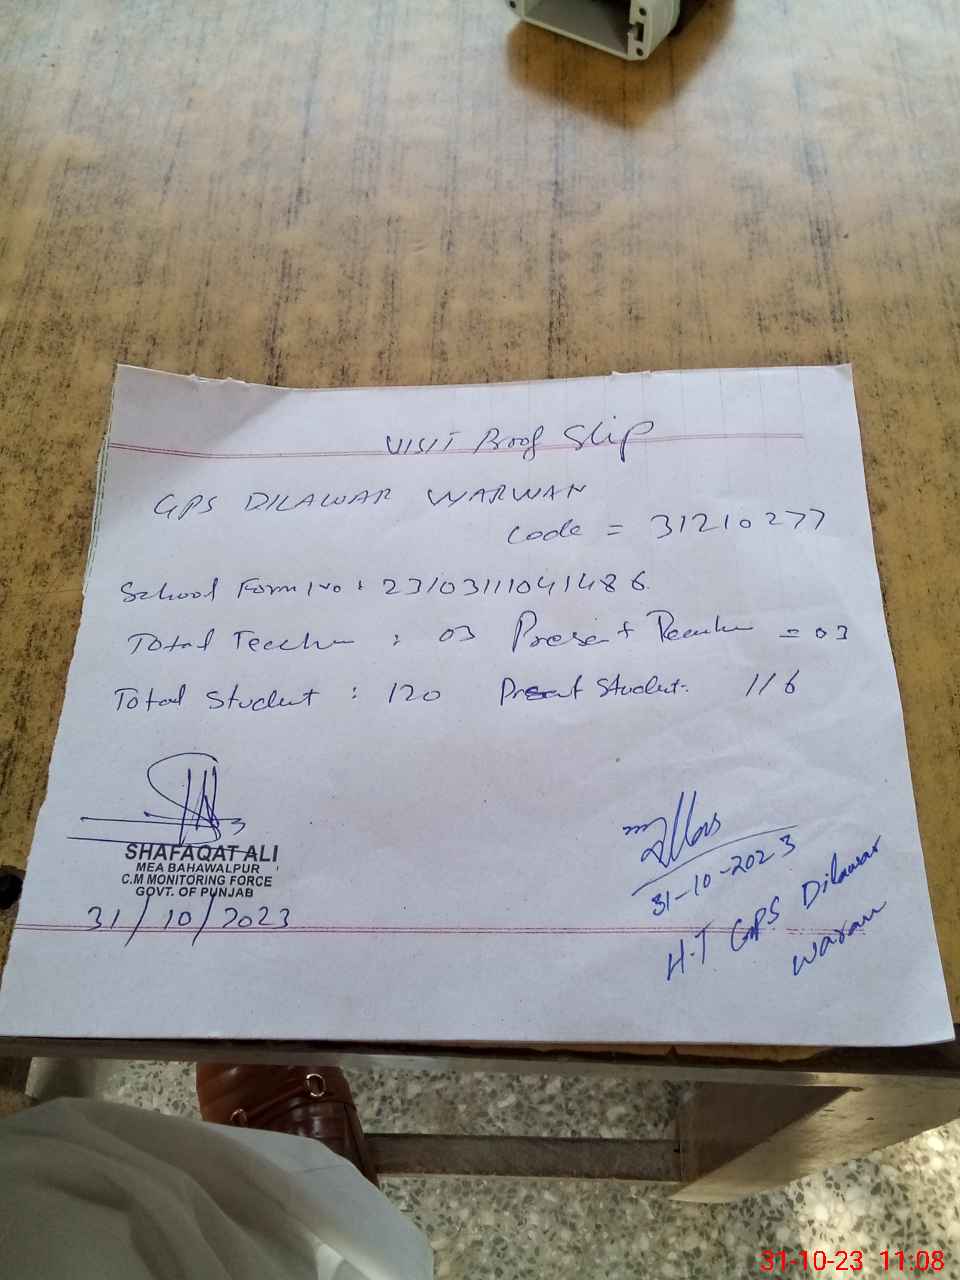 VISIT Proof Slip
GPS DILAWAR WARWAN
Code = 31210277
School Form No : 23103111041486
Total Teacher : 03 Present Teacher = 03
Total Student : 120 Present Student: 116
SHAFAQAT ALI
MEA BAHAWALPUR
C.M MONITORING FORCE
GOVT. OF PUNJAB
31/10/2023
31-10-2023
H.T GPS Dilawar
Waran
31-10-23 11:08